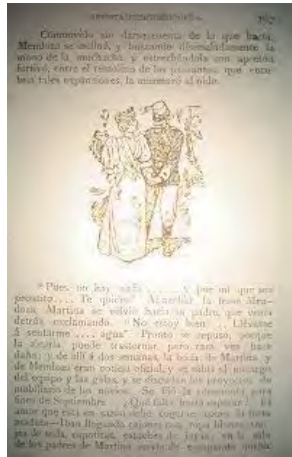 Conmovido sin darse cuenta de lo que hacía,
Mendoza se inclinó, y buscando disimuladamente la
mano de la muchacha y estrechándola con apretón
furtivo, entre el remolino de los paseantes que
tales expansiones, la murmuró al oído:
"Pues no hay nada ..... y por mí que sea
prontito .... Te quiero" Al
Martina se volvió hacia su padre, que venía
detrás, exclamando: "No estoy bien ... Llévame
á sentarme .... agua" Pronto se repuso, porque
la alegría puede trastornar, pero rara vez hace
daño; y de allí á dos semanas, la boda de Martina y
de Mendoza eran noticia oficial, y se sabía el encargo
del equipo y las galas, y se discutían los proyectos de
mobiliario de los novios. Se fijó la ceremonia para
fines de Septiembre. ¿Qué falta hacía esperar? El
amor que está en sazón debe cogerse como la fruta
madura—Iban llegando cajones con ropa blanca,
de seda, capotitas, estuches de joyas; en la sala
de los padres de Martina